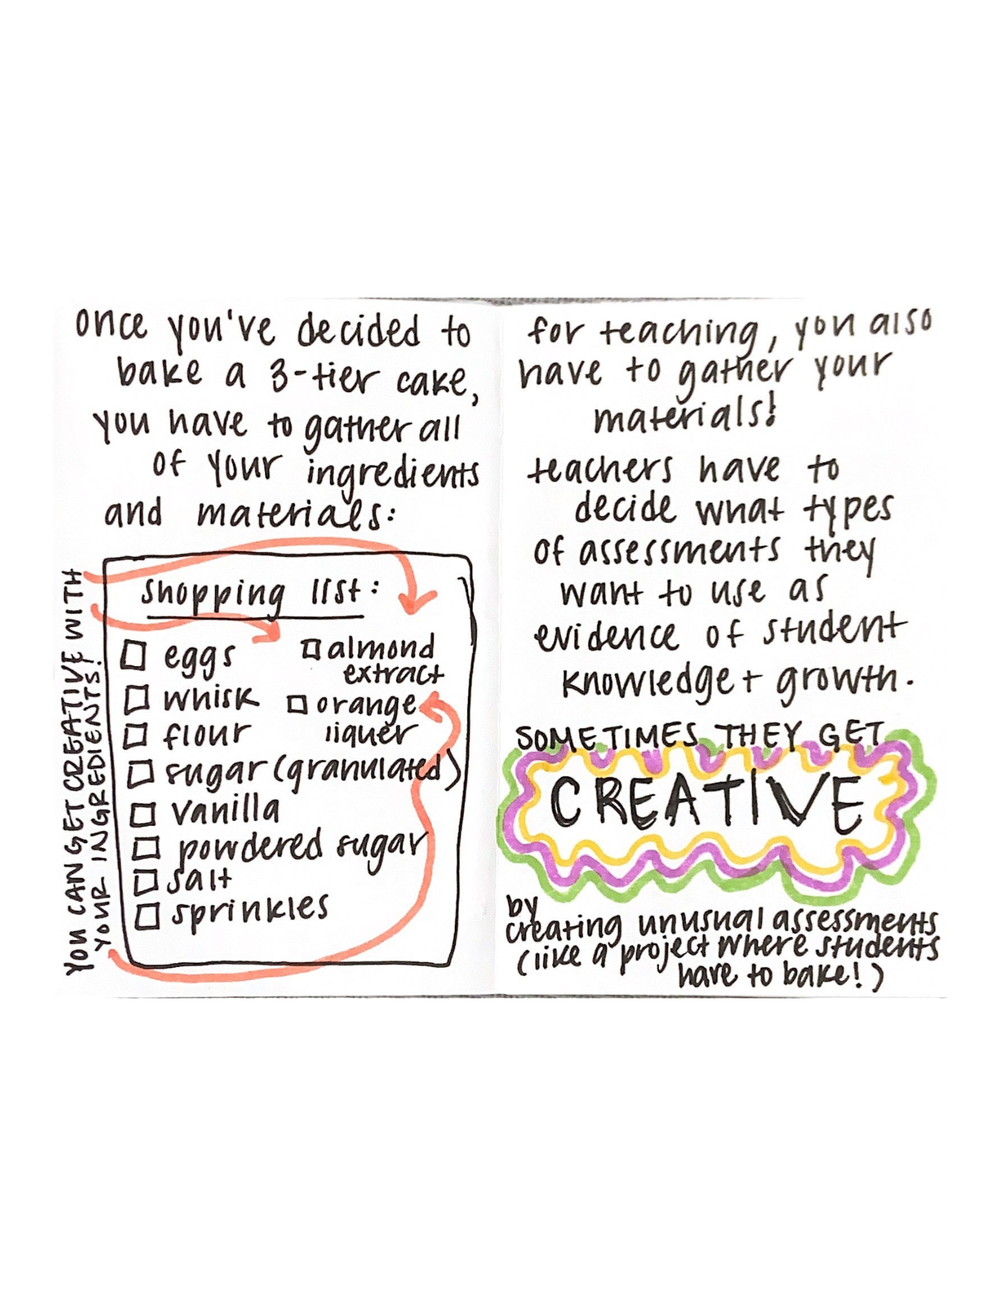 once you've decided to
bake a 3-tier cake,
you have to gather all
of your ingredients
and materials:
YOU CAN GET CREATIVE WITH
YOUR INGREDIENTS!
shopping list:
eggs
whisk
flour
sugar (granulated)
vanilla
powdered sugar
salt
sprinkles
almond
extract
orange
liquer
for teaching, you also
have to gather your
materials!
teachers have to
decide what types
of assessments they
want to use as
evidence of student
knowledge + growth.
SOMETIMES THEY GET
CREATIVE
by
creating unusual assessments
(like a project where students
have to bake!)